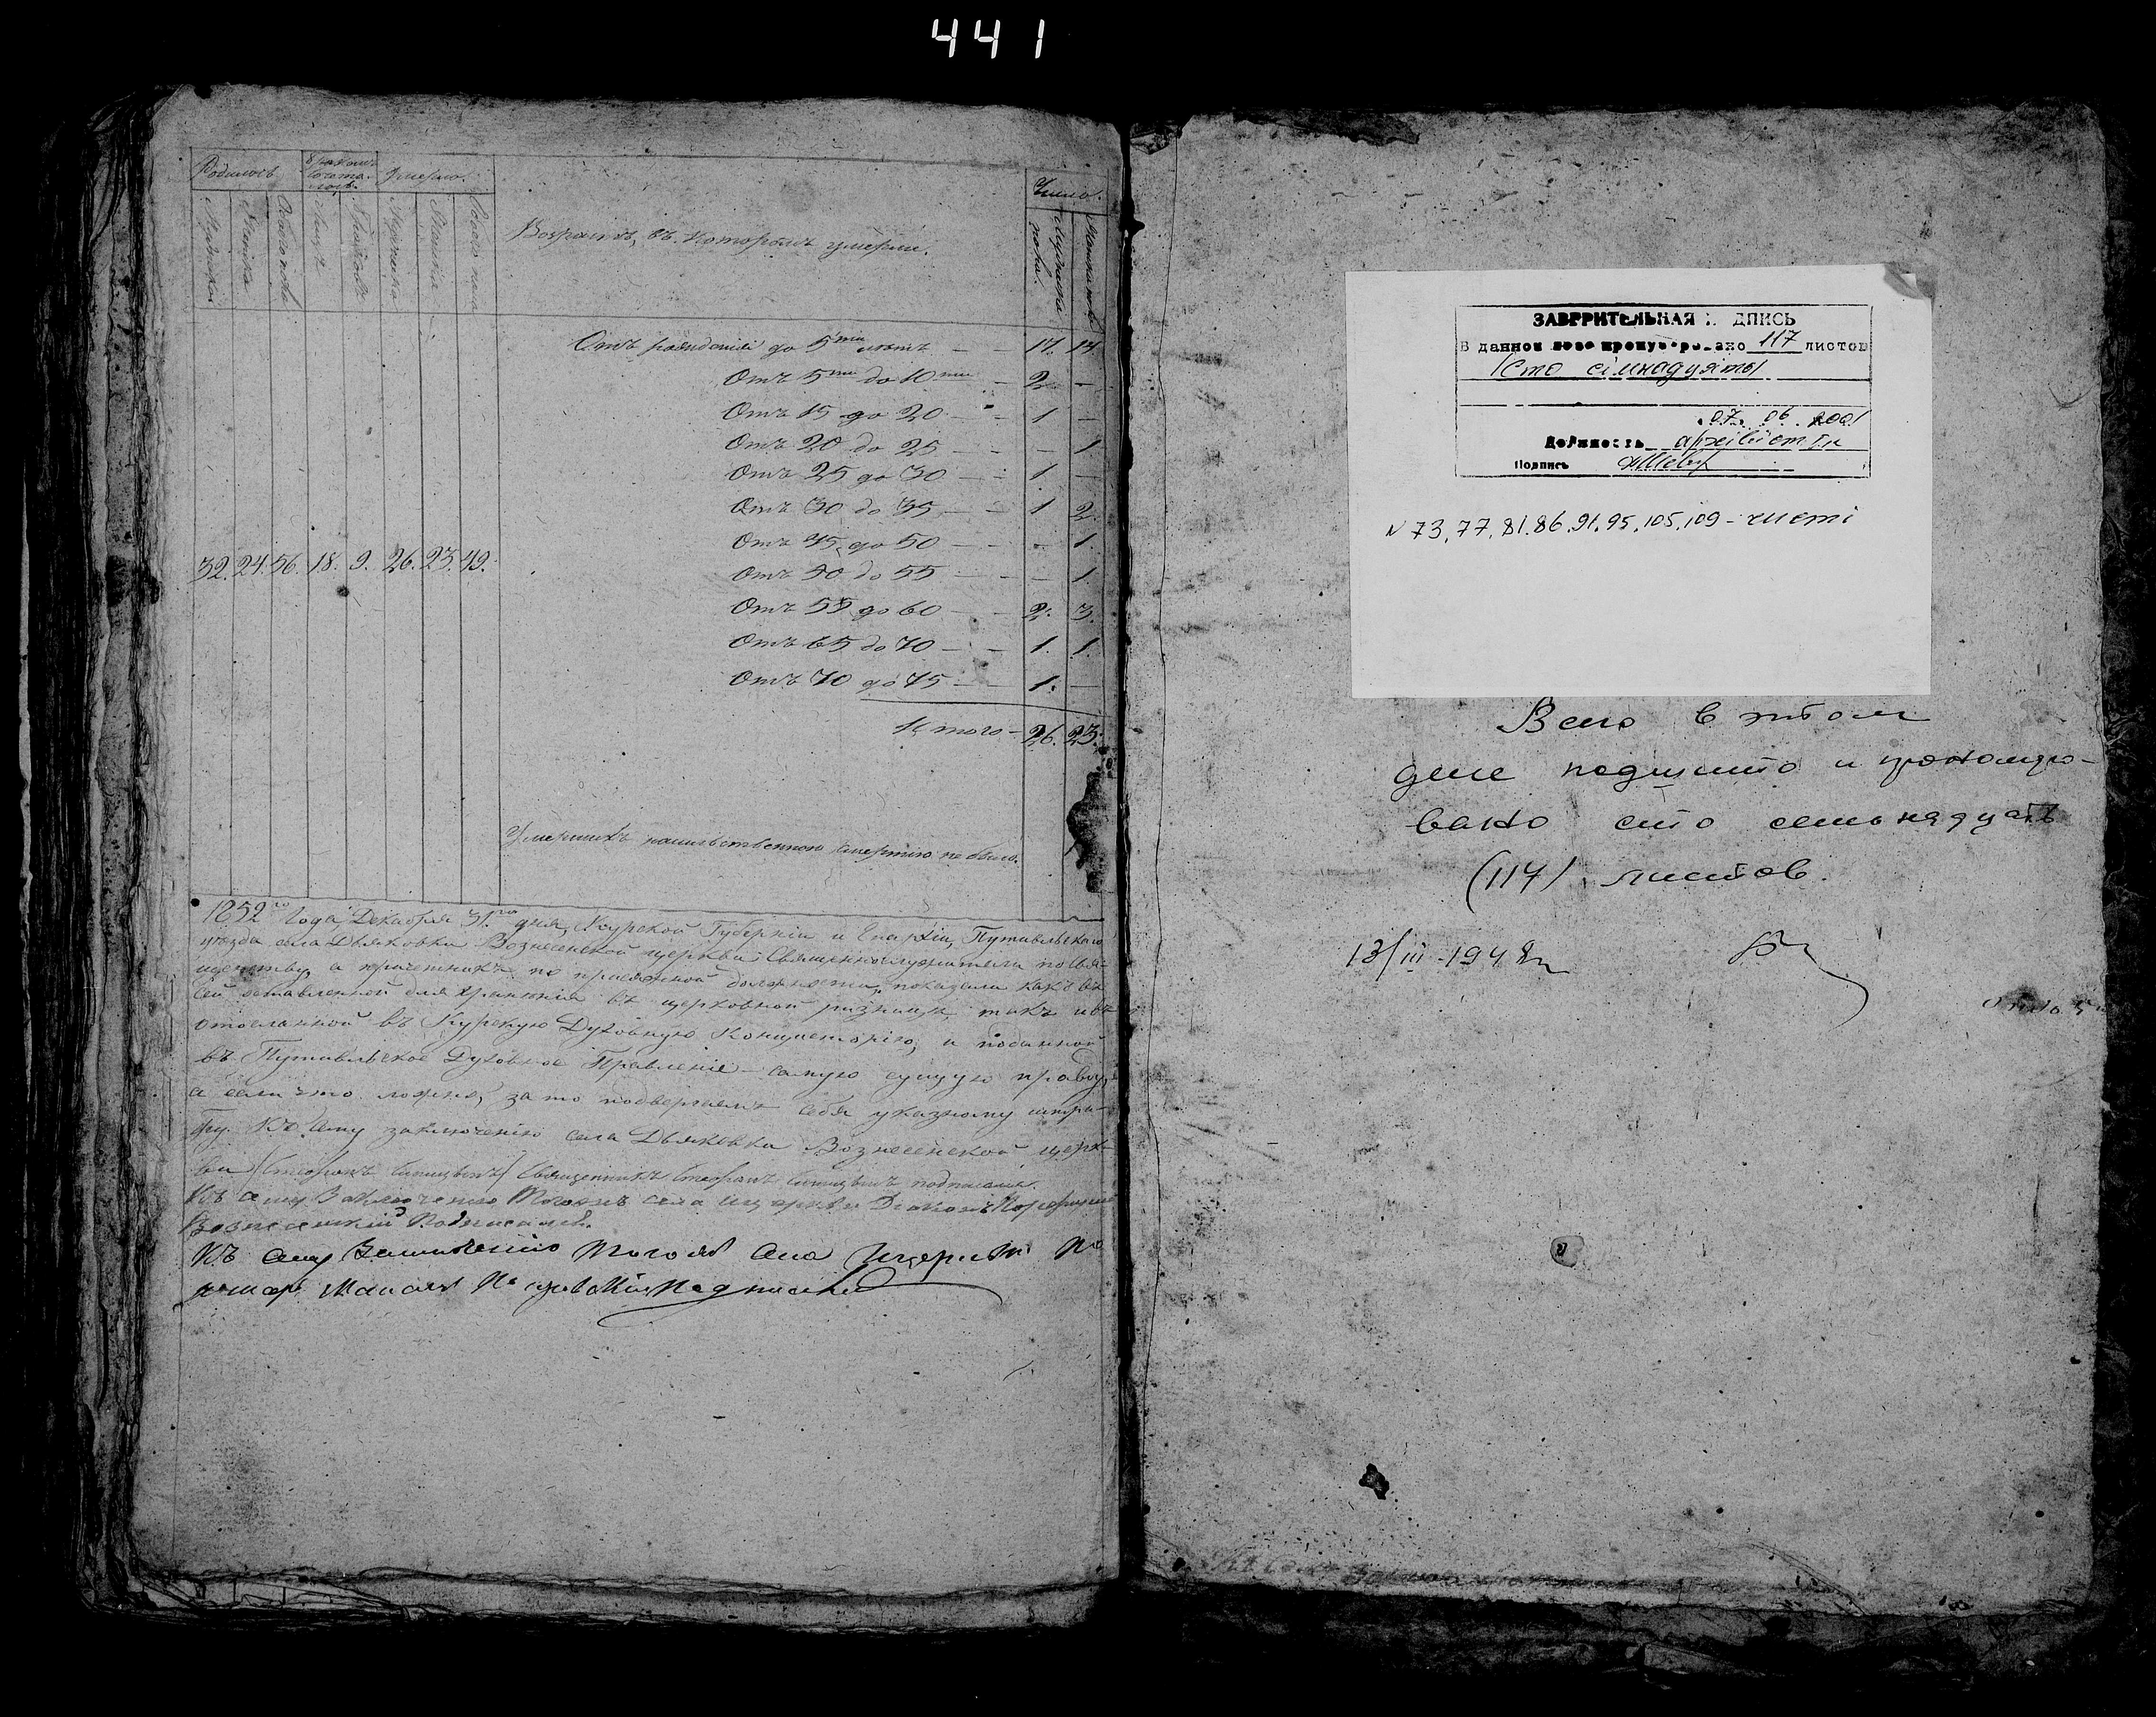 441
Родилось
Бракомъ сочеталось.
Умерло.
Число.
Мужеска
Женска
Обоего пола
Лицъ
Браковъ
Мужеска
Женска
Обоего пола
Возрастъ, въ которомъ умерли.
Мужеска пола.
Женска пола
Отъ рожденія до 5ти лѣтъ — — 17. 14
Отъ 5ти до 10ти — 2. —
Отъ 15 до 20 — — 1 —
Отъ 20 до 25 — — — 1
Отъ 25 до 30 — — 1 —
Отъ 30 до 35 — — 1 2.
Отъ 45 до 50 — — - 1.
32. 24. 56. 18. 9. 26. 23. 49.
Отъ 50 до 55 — — — 1.
Отъ 55 до 60 — — 2. 3.
Отъ 65 до 70 — — 1. 1.
Отъ 70 до 75 — — 1. —
Итого — 26. 23.
Умершихъ насильственною смертію не было.
1852го Года, Декабря 31го дня, Курской Губерніи и Епархіи, Путивльскаго
уѣзда села Дьяковки Вознесенской церкви Священнослужители по свя-
щенству, а причетникъ по присяжной должности, показали какъ въ
сей оставленной для храненія въ церковной ризницѣ, такъ и въ
отосланной въ Курскую Духовную Консисторію, и поданной
въ Путивльское Духовное Правленіе — самую сущую правду,
а если что ложно, за то подвергаемъ себя указному штра-
фу. Къ сему заключенію села Дьяковки Вознесенской церк-
ви Священникъ Стефанъ подписался.
Къ сему Заключенію Тогожъ села и церкви Діаконъ
Вознесенскій Подписался.
Къ сему Заключенію Тогожъ села И церкви По
номарь
ЗАВЕРИТЕЛЬНАЯ НАДПИСЬ
В данном деле пронумеровано 117 листов
(Сто сімнадцять)
07. 06. 2001
Должность архівіст І к
Подпись
№ 73, 77, 81. 86. 91. 95. 105. 109 - чисті
Всего в этом
деле подшито и пронумеро-
вано сто семнадцать
(117) листов.
13/III-1948 г